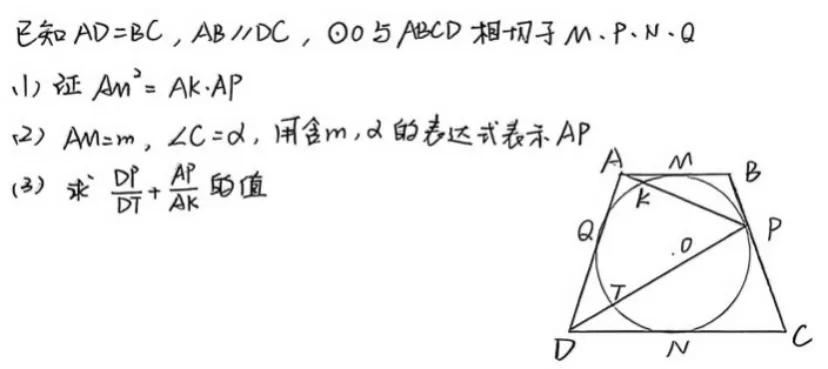 已知 AD=BC , AB//DC , ⊙O与ABCD 相切于 M、P、N、Q
(1) 证 AM²= AK·AP
(2) AM=m , ∠C=α , 用含m,α 的表达式表示 AP
(3) 求 DP/DT + AP/AK 的值
A M B
K
Q O P
T
D N C